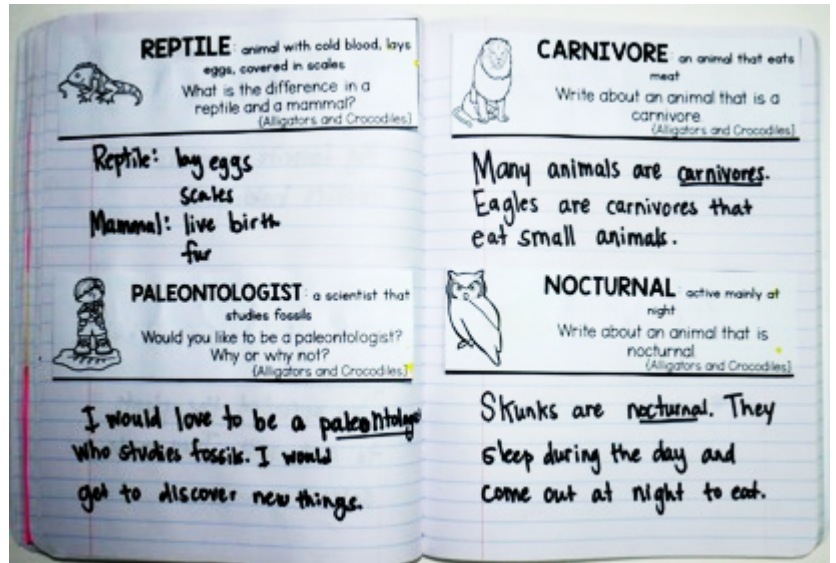 REPTILE: animal with cold blood, lays
eggs, covered in scales
What is the difference in a
reptile and a mammal?
{Alligators and Crocodiles}
Reptile: lay eggs
scales
Mammal: live birth
fur
PALEONTOLOGIST: a scientist that
studies fossils
Would you like to be a paleontologist?
Why or why not?
{Alligators and Crocodiles}
I would love to be a paleontologist
who studies fossils. I would
get to discover new things.
CARNIVORE: an animal that eats
meat
Write about an animal that is a
carnivore.
{Alligators and Crocodiles}
Many animals are carnivores.
Eagles are carnivores that
eat small animals.
NOCTURNAL: active mainly at
night
Write about an animal that is
nocturnal.
{Alligators and Crocodiles}
Skunks are nocturnal. They
sleep during the day and
come out at night to eat.